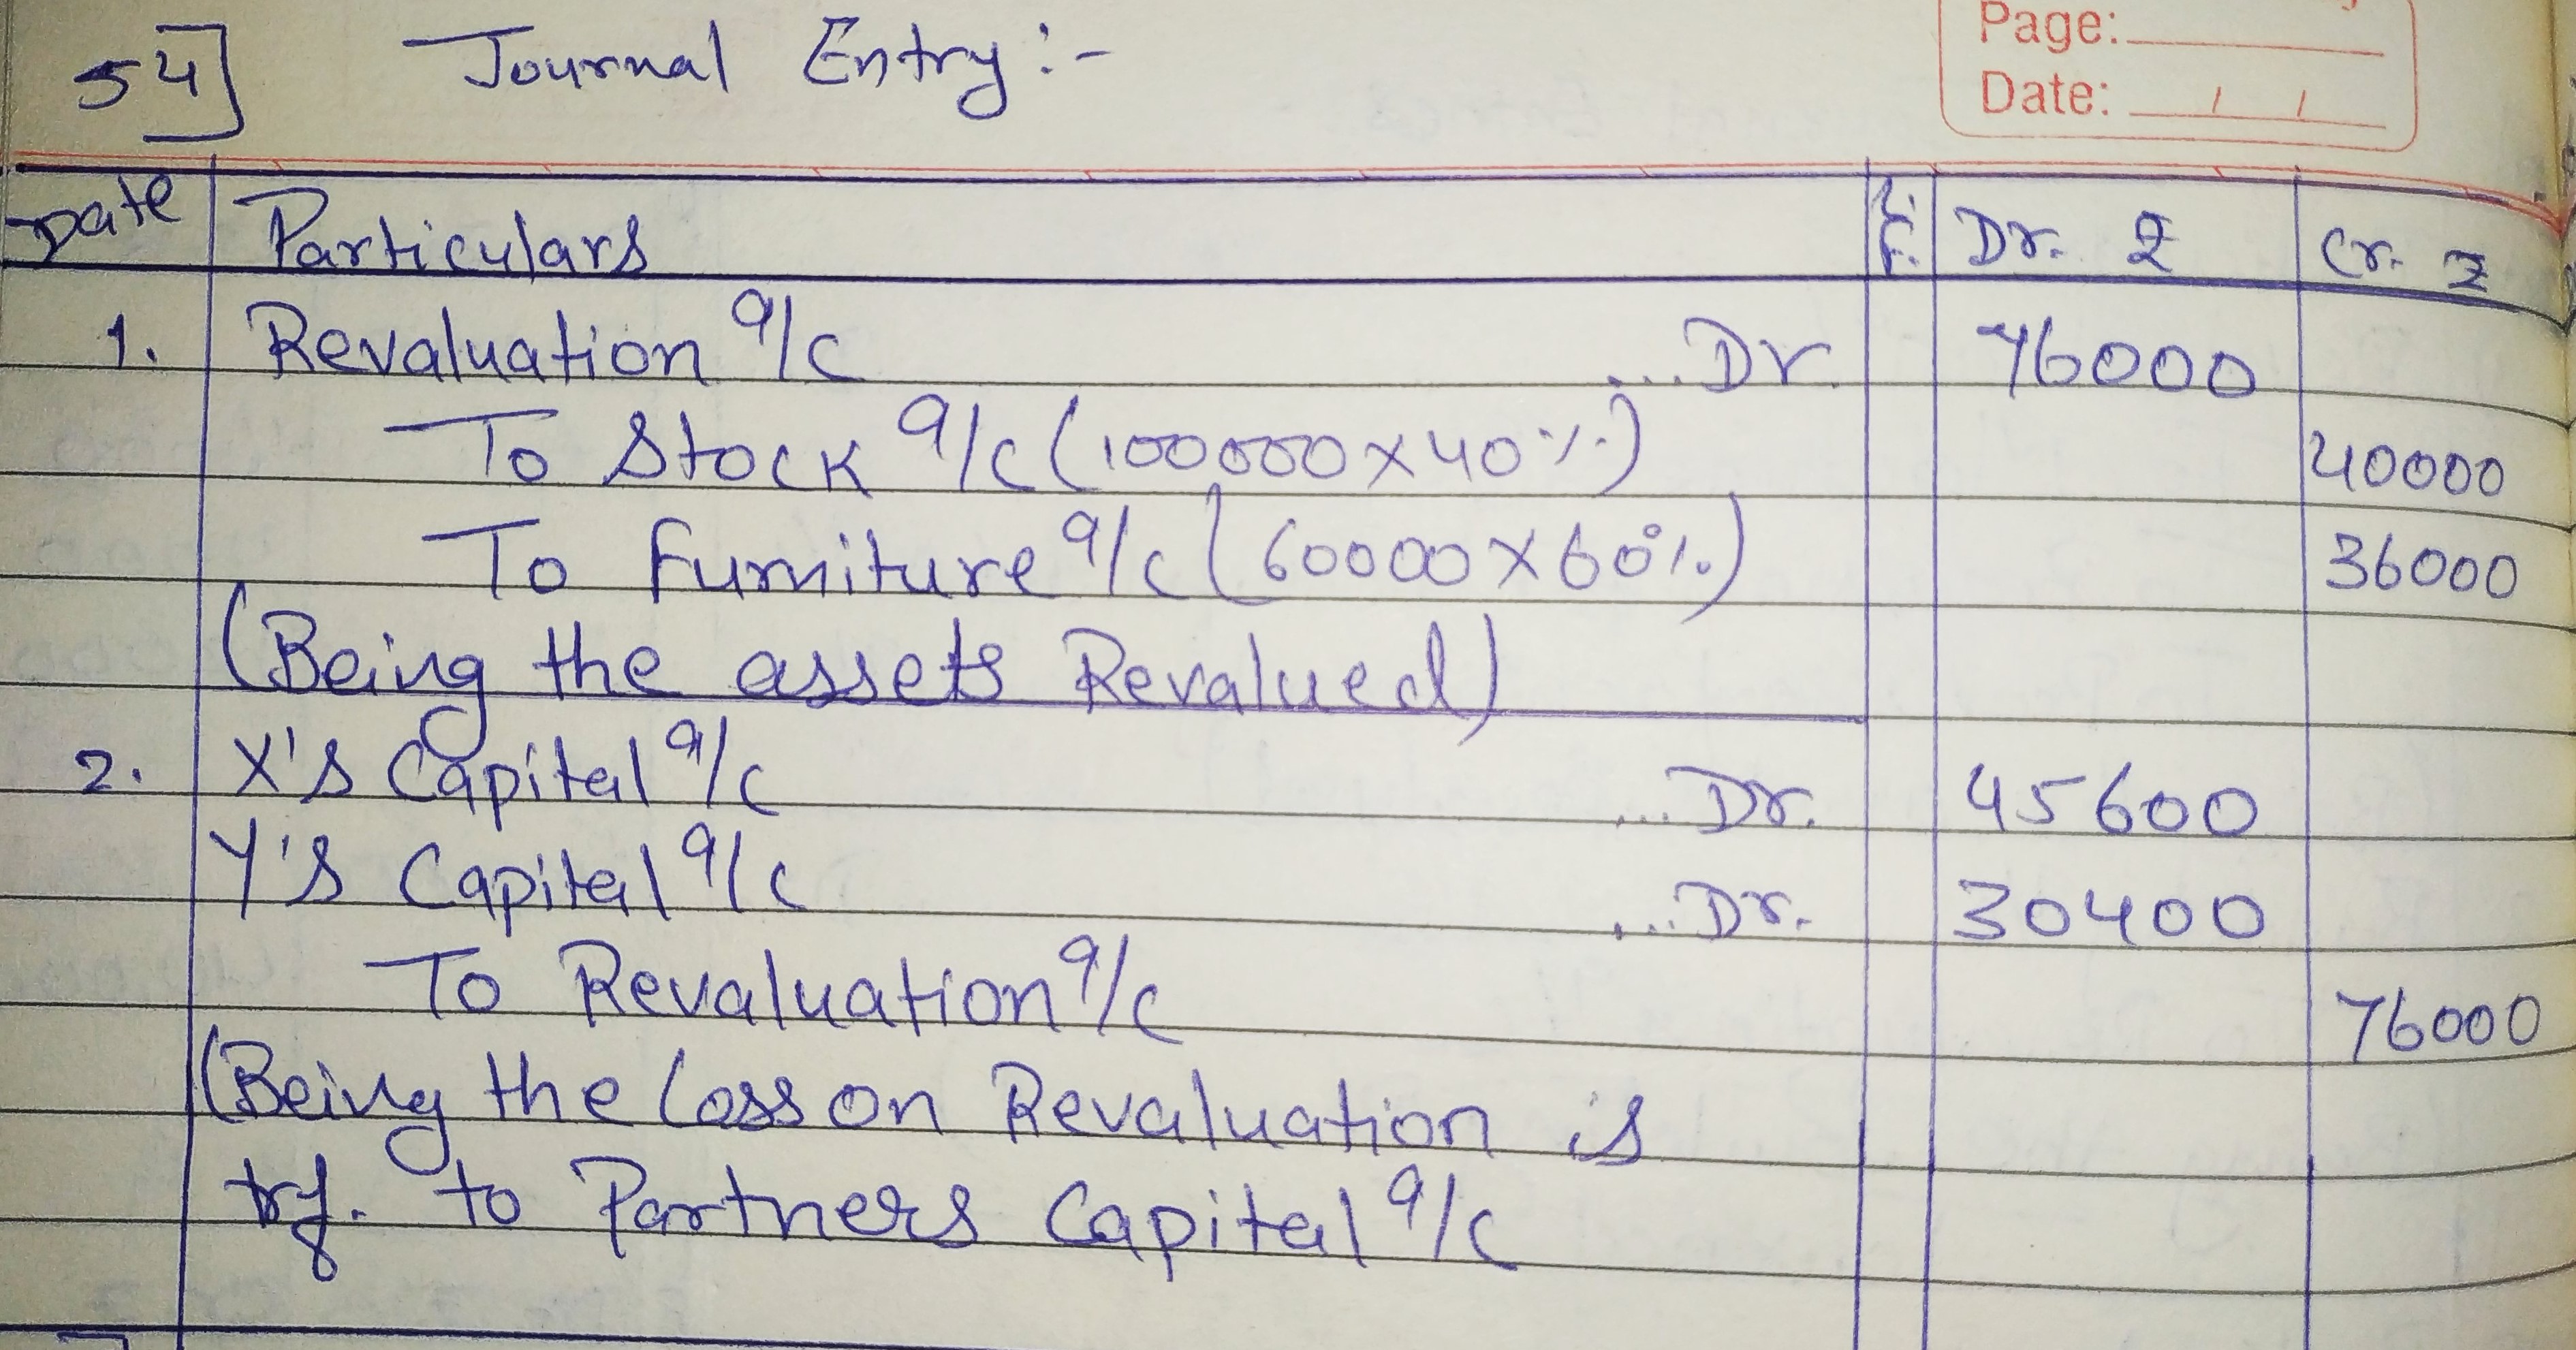 Page:
54] Journal Entry:-
Date: / /
Date Particulars L.F. Dr. ₹ Cr. ₹
1. Revaluation a/c ...Dr. 76000
To Stock a/c (100000×40%) 40000
To Furniture a/c (60000×60%) 36000
(Being the assets Revalued)
2. X's Capital a/c ...Dr. 45600
Y's Capital a/c ...Dr. 30400
To Revaluation a/c 76000
(Being the loss on Revaluation is
trf. to Partners Capital a/c